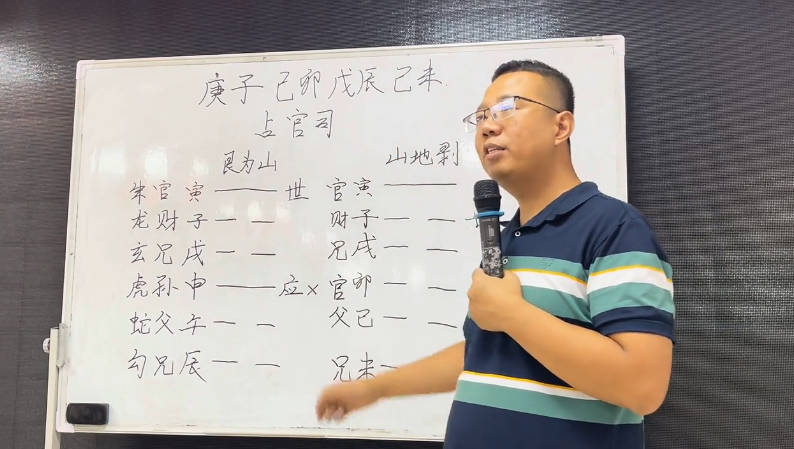 庚子 己卯 戊辰 己未
占官司
艮为山 山地剥
朱官寅 世 官寅
龙财子 财子
玄兄戌 兄戌
虎孙申 应× 官卯
蛇父午 父巳
勾兄辰 兄未